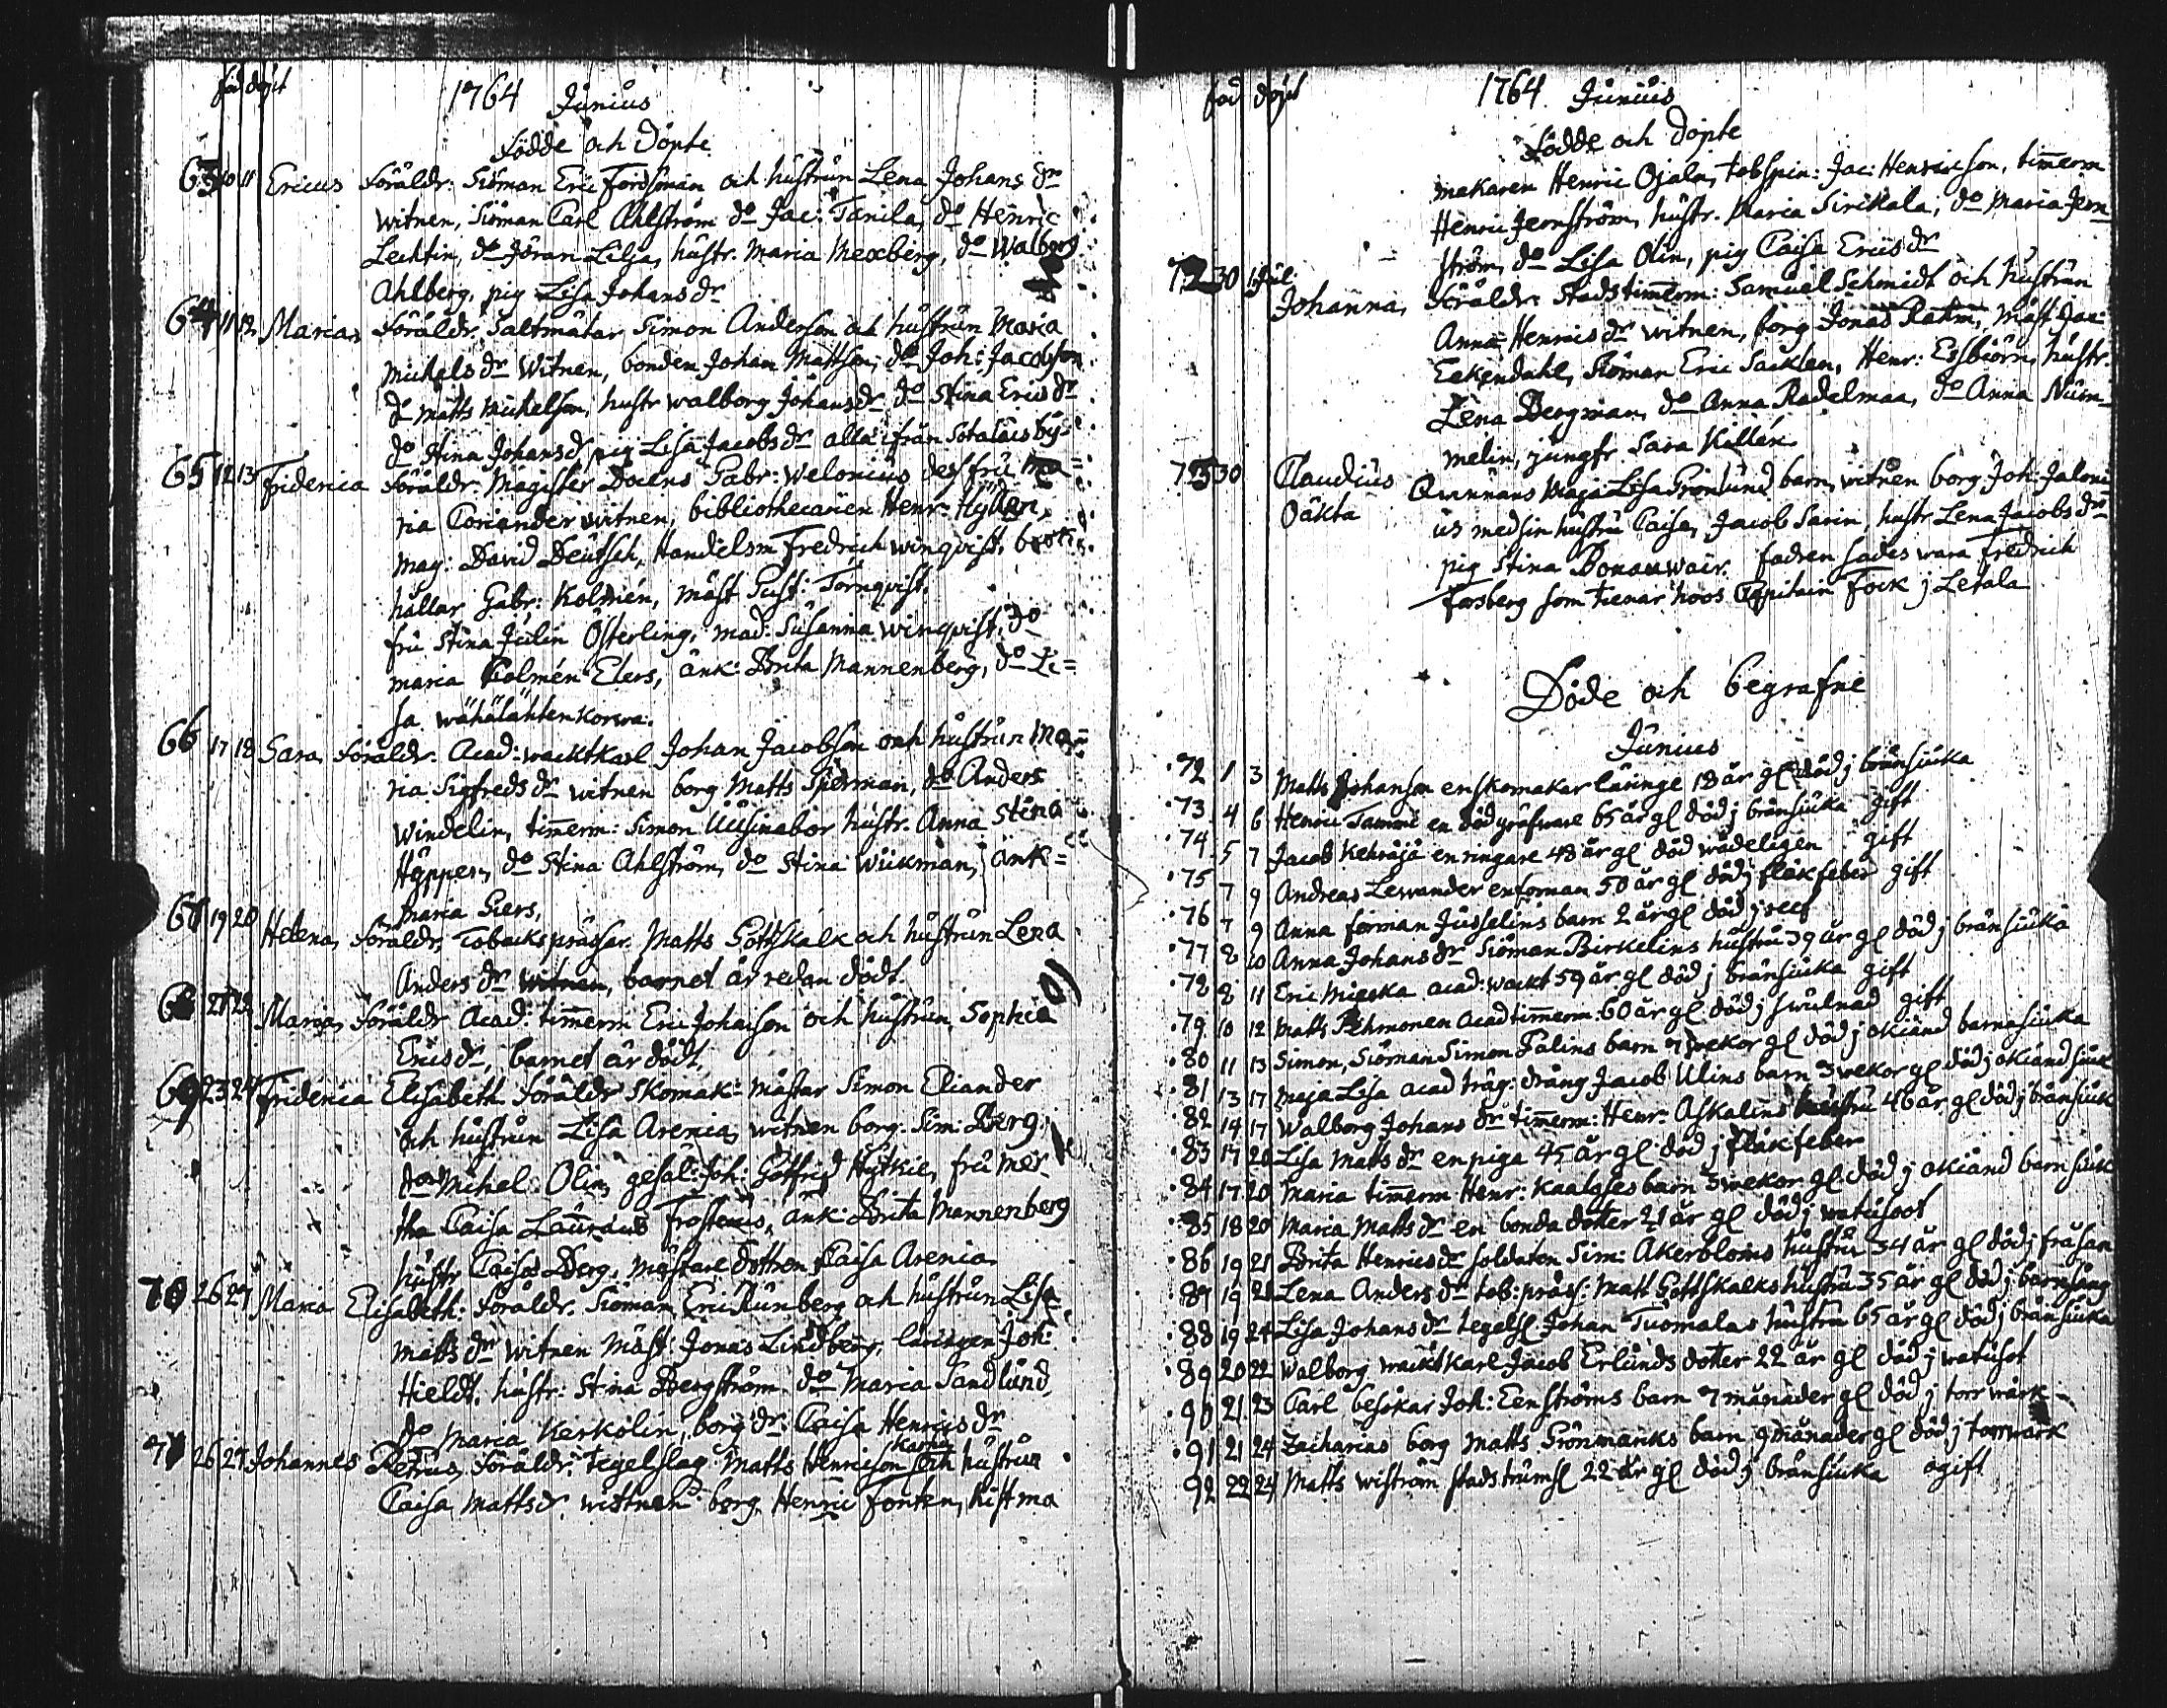 föd döpt
1764 Junius
Födde och Döpte
63 10 11 Ericus Föräldr: Siöman Eric Fordsman och hustrun Lena Johans dr
witnen, Siöman Carl Ahlström do Jac: Tanila, do Henric
Lechtin, do Jöran Lilja, hustr. Maria Mexberg, do Walborg
Ahlberg, pig Lisa Johans dr
64 11 12 Maria, Föräldr. Saltmätar Simon Anderson och hustrun Maria
Michels dr Witnen, bonden Johan Mattson, do Joh: Jacobson
do Matts Michelson, hustr walborg Johans dr do Stina Erics dr
do Stina Johans d pig Lisa Jacobs dr alla ifrån Sotalais by
65 12 13 Friderica Föräldr Magister Docens Gabr: Welonius dess fru Ma
ria Coriander witnen, bibliothecarien Henr: Hydén,
Mag: David Deutsch, Handelsm Fredrich winqvist, bok
hållar Gabr: Kolmén, mäst Gust: Törnqvist,
fru Stina Julin Österling, mad: Susanna winqvist, do
maria Kolmén Elers, änk: Brita Mannenberg, do Li=
sa wähälähtenkorwa.
66 17 18 Sara, Föräldr. Acad: wacktkarl Johan Jacobson och hustrun Ma=
ria Sigfreds dr witnen borg Matts Sperman, do Anders
Windelin, timerm: Simon Uusinabor hustr. Anna Stina
Höppen, do Stina Ahlström, do Stina Wiikman, änk=
Maria Giers,
67 19 20 Helena, Föräldr, Tobackspråssar Matts Gottskalk och hustrun Lena
Anders dr witnen, barnet är redan dödt.
68 21 22 Maria, Föräldr Acad: timerm Eric Johanson och hustrun Sophia
Erics dr, barnet är dödt,
69 23 24 Friderica Elisabeth Föräldr Skomak: mästar Simon Eliander
och hustrun Lisa Arenia, witnen borg. Sim: Berg,
do Michel Olin, gesäl: Joh: Gottfrid Hytkie, fru Mer
tha Caisa Laureus Frosterus, änk: Brita Mannenberg
hustr Caisa Berg, mästare dottren Caisa Arenia
70 26 27 Maria Elisabeth: Föräldr. Siöman Eric Runberg och hustrun Lisa
Matts dr witnen Mäst: Jonas Lindberg, läringen Joh:
Hieldt, hustr: Stina Bergström do Maria Sandlund,
do Maria Kerkolin, borg dr: Caisa Henrics dr
71 26 27 Johannes Petrus, Föräldr: tegelslag Matts Henricson Karna och hustrun
Caisa Matts dr, wittnen borg, Henric Fonten, kistma
föd döpt
1764 Junius
Födde och Döpte
makaren Henric Ojala, tobspin: Jac: Henricson, timerm
Henric Jernström, hustr. Maria Sirikala, do Maria Jern
ström, do Lisa Olin, pig Caisa Erics dr
72 30 1 Jul: Johanna, Föräldr. Stadstimerm: Samuel Schmidt och hustrun
Anna Henrics dr witnen, borg Jonas Rahm, mäst Jac:
Eekendahl, Siöman Eric Sacklen, Henr: Essbiörn, hustr.
Lena Bergman, do Anna Radelmaa, do Anna Num
melin, jungfr. Sara Killén
73 30 Claudius Qvinnans Maja Lisa Grönlund barn, witnen borg Joh: Jaloni
Oäkta us med sin hustru Caisa, Jacob Sarin, hustr Lena Jacobs dr
pig Stina Bonauwair. fadren sades wara Fredrich
Forsberg som tienar hoos Capitain Fock j Letala
Döde och begrafne
Junius
72 1 3 Matts Johanson en skomakar läringe 18 år gl död j bränsiuka
73 4 6 Henric Tammi en dödgräfware 65 år gl död j bränsiuka gift
74 5 7 Jacob Kehräjä en ringare 48 år gl död wådeligen gift
75 7 9 Andreas Lewander en forman 50 år gl död j fläkfeber gift
76 7 9 Anna forman Jusselins barn 2 år gl död j
77 8 10 Anna Johans dr Siöman Birkelins hustru 39 år gl död j bränsiuka
78 8 11 Eric Mieska acad: wackt 59 år gl död j bränsiuka gift
79 10 12 Matts Pehmonen Acad timerm: 60 år gl död j swulnad gift
80 11 13 Simon, Siöman Simon Falins barn 7 wekor gl död j okiänd barnasiuka
81 13 17 Maja Lisa acad träg: dräng Jacob Ulins barn 3 wekor gl död j okiänd siuk
82 14 17 Walborg Johans dr timerm: Henr: Askalins hustru 46 år gl död j bränsiuk
83 17 20 Lisa Matts dr en piga 45 år gl död j fläkfeber
84 17 20 Maria timerm Henr: Kaaloses barn 3 wekor gl död j okiänd barn siuk
85 18 20 Maria Matts dr en bonda dotter 21 år gl död j watusoot
86 19 21 Brita Henrics dr soldaten Sim: Åkerbloms hustru 34 år gl död j fråsan
87 19 21 Lena Anders dr tob: präss: Matt Gottskalks hustru 35 år gl död j barnsäng
88 19 24 Lisa Johans dr tegelsl Johan Tuomalas hustru 65 år gl död j bränsiuka
89 20 22 Walborg wacktkarl Jacob Erlunds dotter 22 år gl död j watusot
90 21 23 Carl besökar Joh: Eenströms barn 7 månader gl död j torrwärk
91 21 24 Zacharias borg Matts Grönmanks barn 9 månader gl död j torrwärk
92 22 24 Matts wiström stads trumsl 22 år gl död j bränsiuka ogift